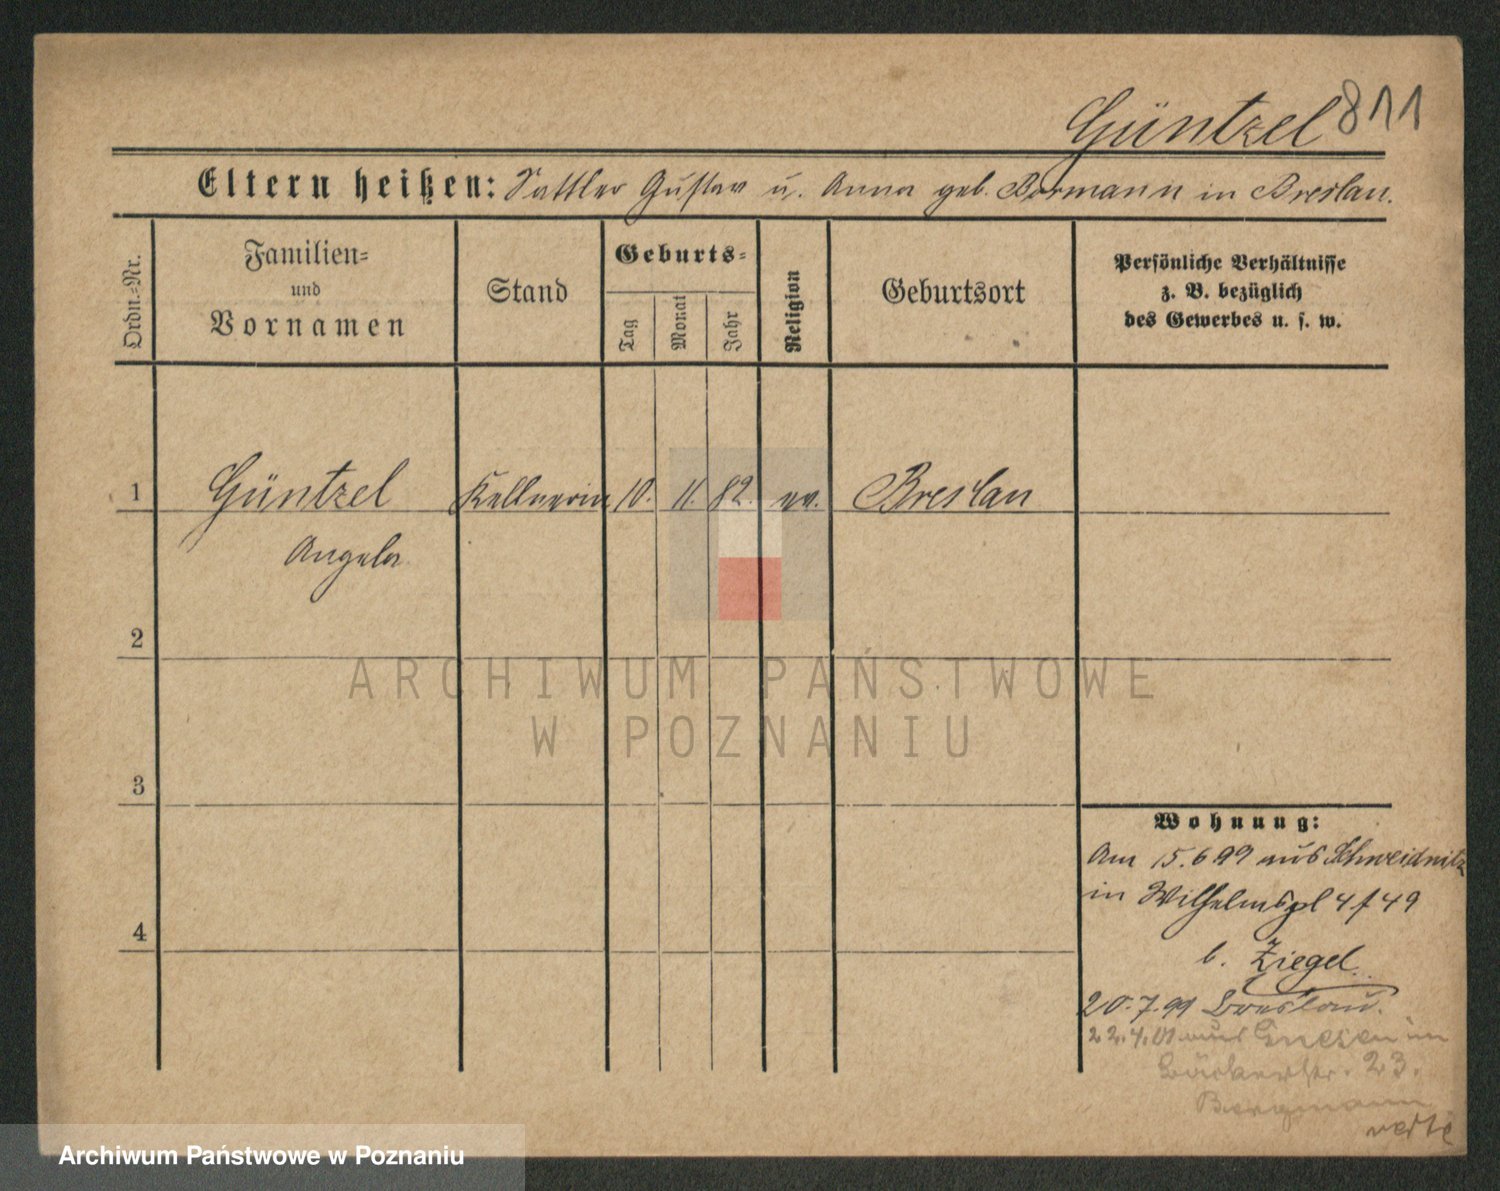 Güntzel 811
Eltern heißen: Sattler Gustav u. Anna geb. Bormann in Breslau.
Ordn.=Nr.
Familien=
und
Vornamen
Stand
Geburts=
Tag
Monat
Jahr
Religion
Geburtsort
Persönliche Verhältnisse
z. B. bezüglich
des Gewerbes u. s. w.
1 Güntzel Kellnerin 10. 11. 82. ev. Breslau
Angela
2
3
4
Wohnung:
Am 15.6 99 aus Schweidnitz
in Wilhelmspl 4 f 49
b. Ziegel
20.7.99 Breslau.
22.4.01 aus Gnesen in
Bäckerstr. 23.
Bergmann
verte
ARCHIWUM PAŃSTWOWE
W POZNANIU
Archiwum Państwowe w Poznaniu